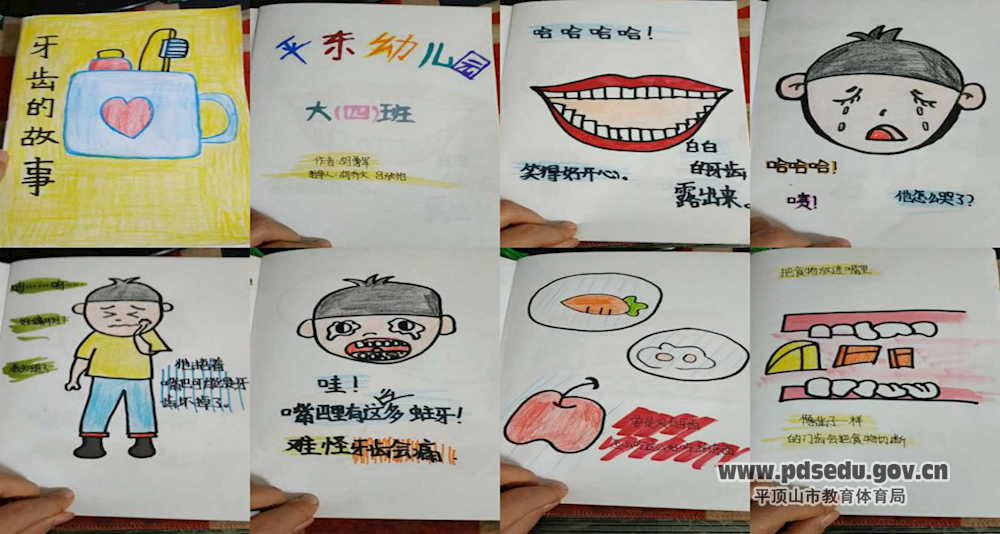 牙齿的故事
平东幼儿园
大(四)班
作者:胡勇辉
哈哈哈哈!
笑得好开心。
白白
的牙齿
露出来。
哈哈哈!
咦!
他怎么哭了?
他捂着
嘴巴可能是牙
齿坏掉了。
哇!
嘴巴里有这多蛀牙!
难怪牙齿会痛.
要是没有牙齿
把食物放进嘴里
像凿子一样
的门齿会把食物切断
www.pdsedu.gov.cn
平顶山市教育体育局